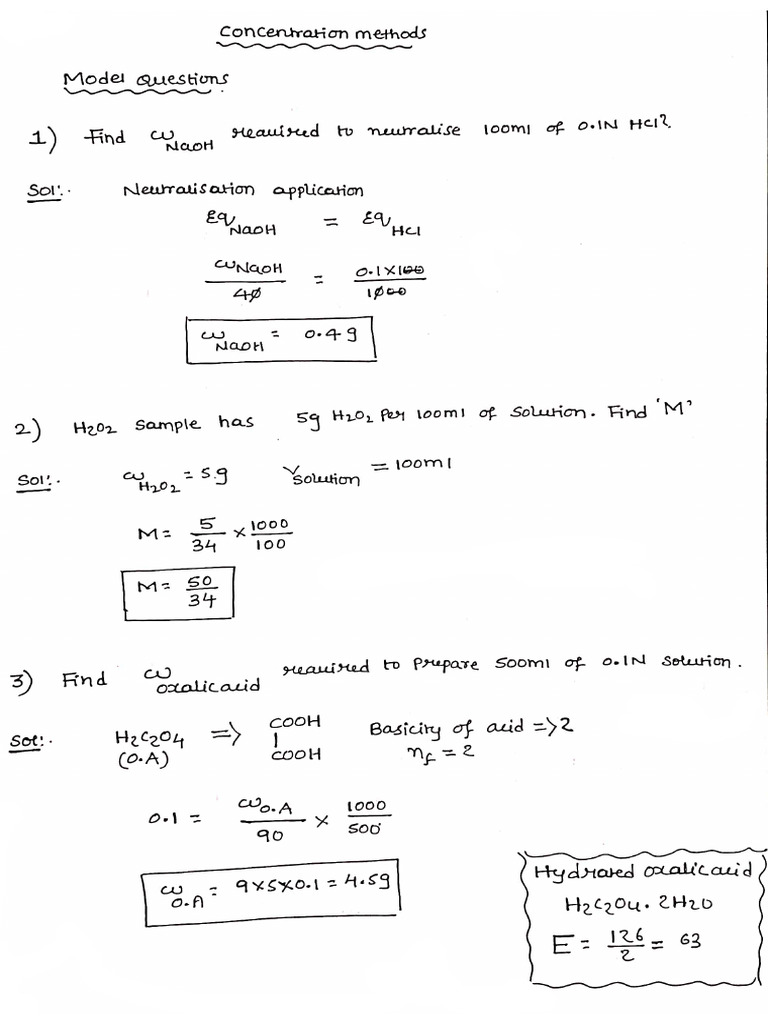 Concentration methods
Model Questions
1) Find W NaOH required to neutralise 100ml of 0.1N HCl?
Sol:. Neutralisation application
Eq NaOH = Eq HCl
W NaOH / 40 = 0.1×100 / 1000
W NaOH = 0.4g
2) H2O2 sample has 5g H2O2 Per 100ml of solution. Find 'M'
Sol:. W H2O2 = 5g V solution = 100ml
M = 5/34 × 1000/100
M = 50/34
3) Find W oxalicacid required to prepare 500ml of 0.1N solution.
Sol:. H2C2O4 (O.A) => COOH | COOH Basicity of acid => 2
nf = 2
0.1 = W O.A / 90 × 1000/500
W O.A = 9×5×0.1 = 4.5g
Hydrated oxalicacid
H2C2O4. 2H2O
E = 126/2 = 63